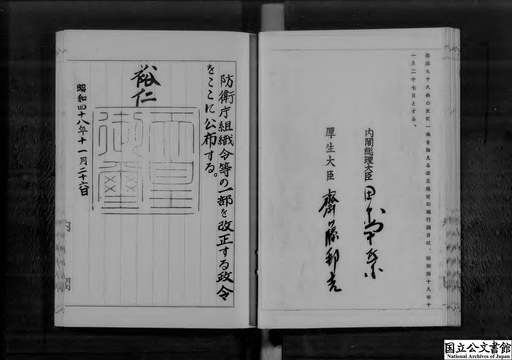 法第九十八条の次に一条を加える改正規定の施行期日は、昭和四十八年十
一月二十七日とする。
内閣総理大臣 田中角榮
厚生大臣 齋藤邦吉
防衛庁組織令等の一部を改正する政令
をここに公布する。
裕仁
天皇御璽
昭和四十八年十一月二十六日
内閣
国立公文書館
National Archives of Japan